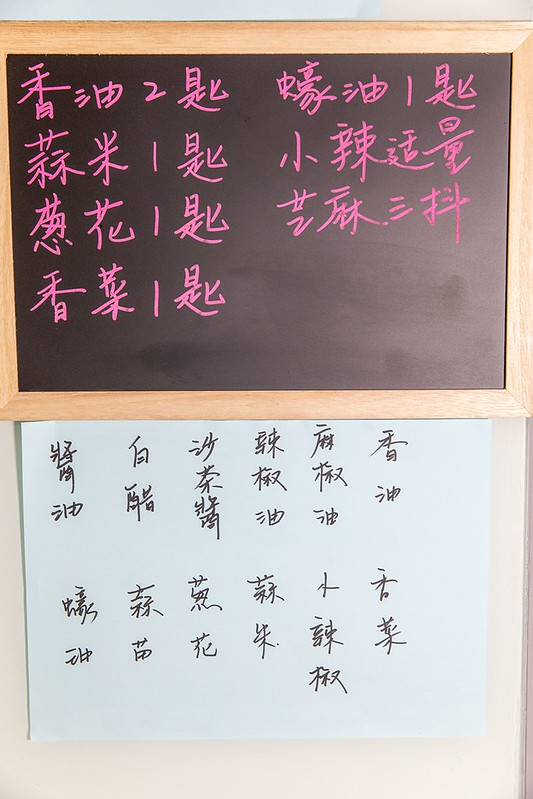 香油2匙
蒜米1匙
蔥花1匙
香菜1匙
蠔油1匙
小辣適量
芝麻三抖
香油
麻椒油
辣椒油
沙茶醬
白醋
醬油
香菜
小辣椒
蒜米
蔥花
蒜苗
蠔油